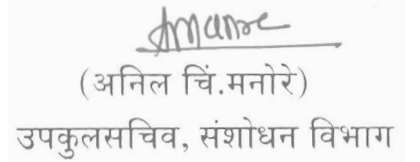 (अनिल चिं.मनोरे)
उपकुलसचिव, संशोधन विभाग